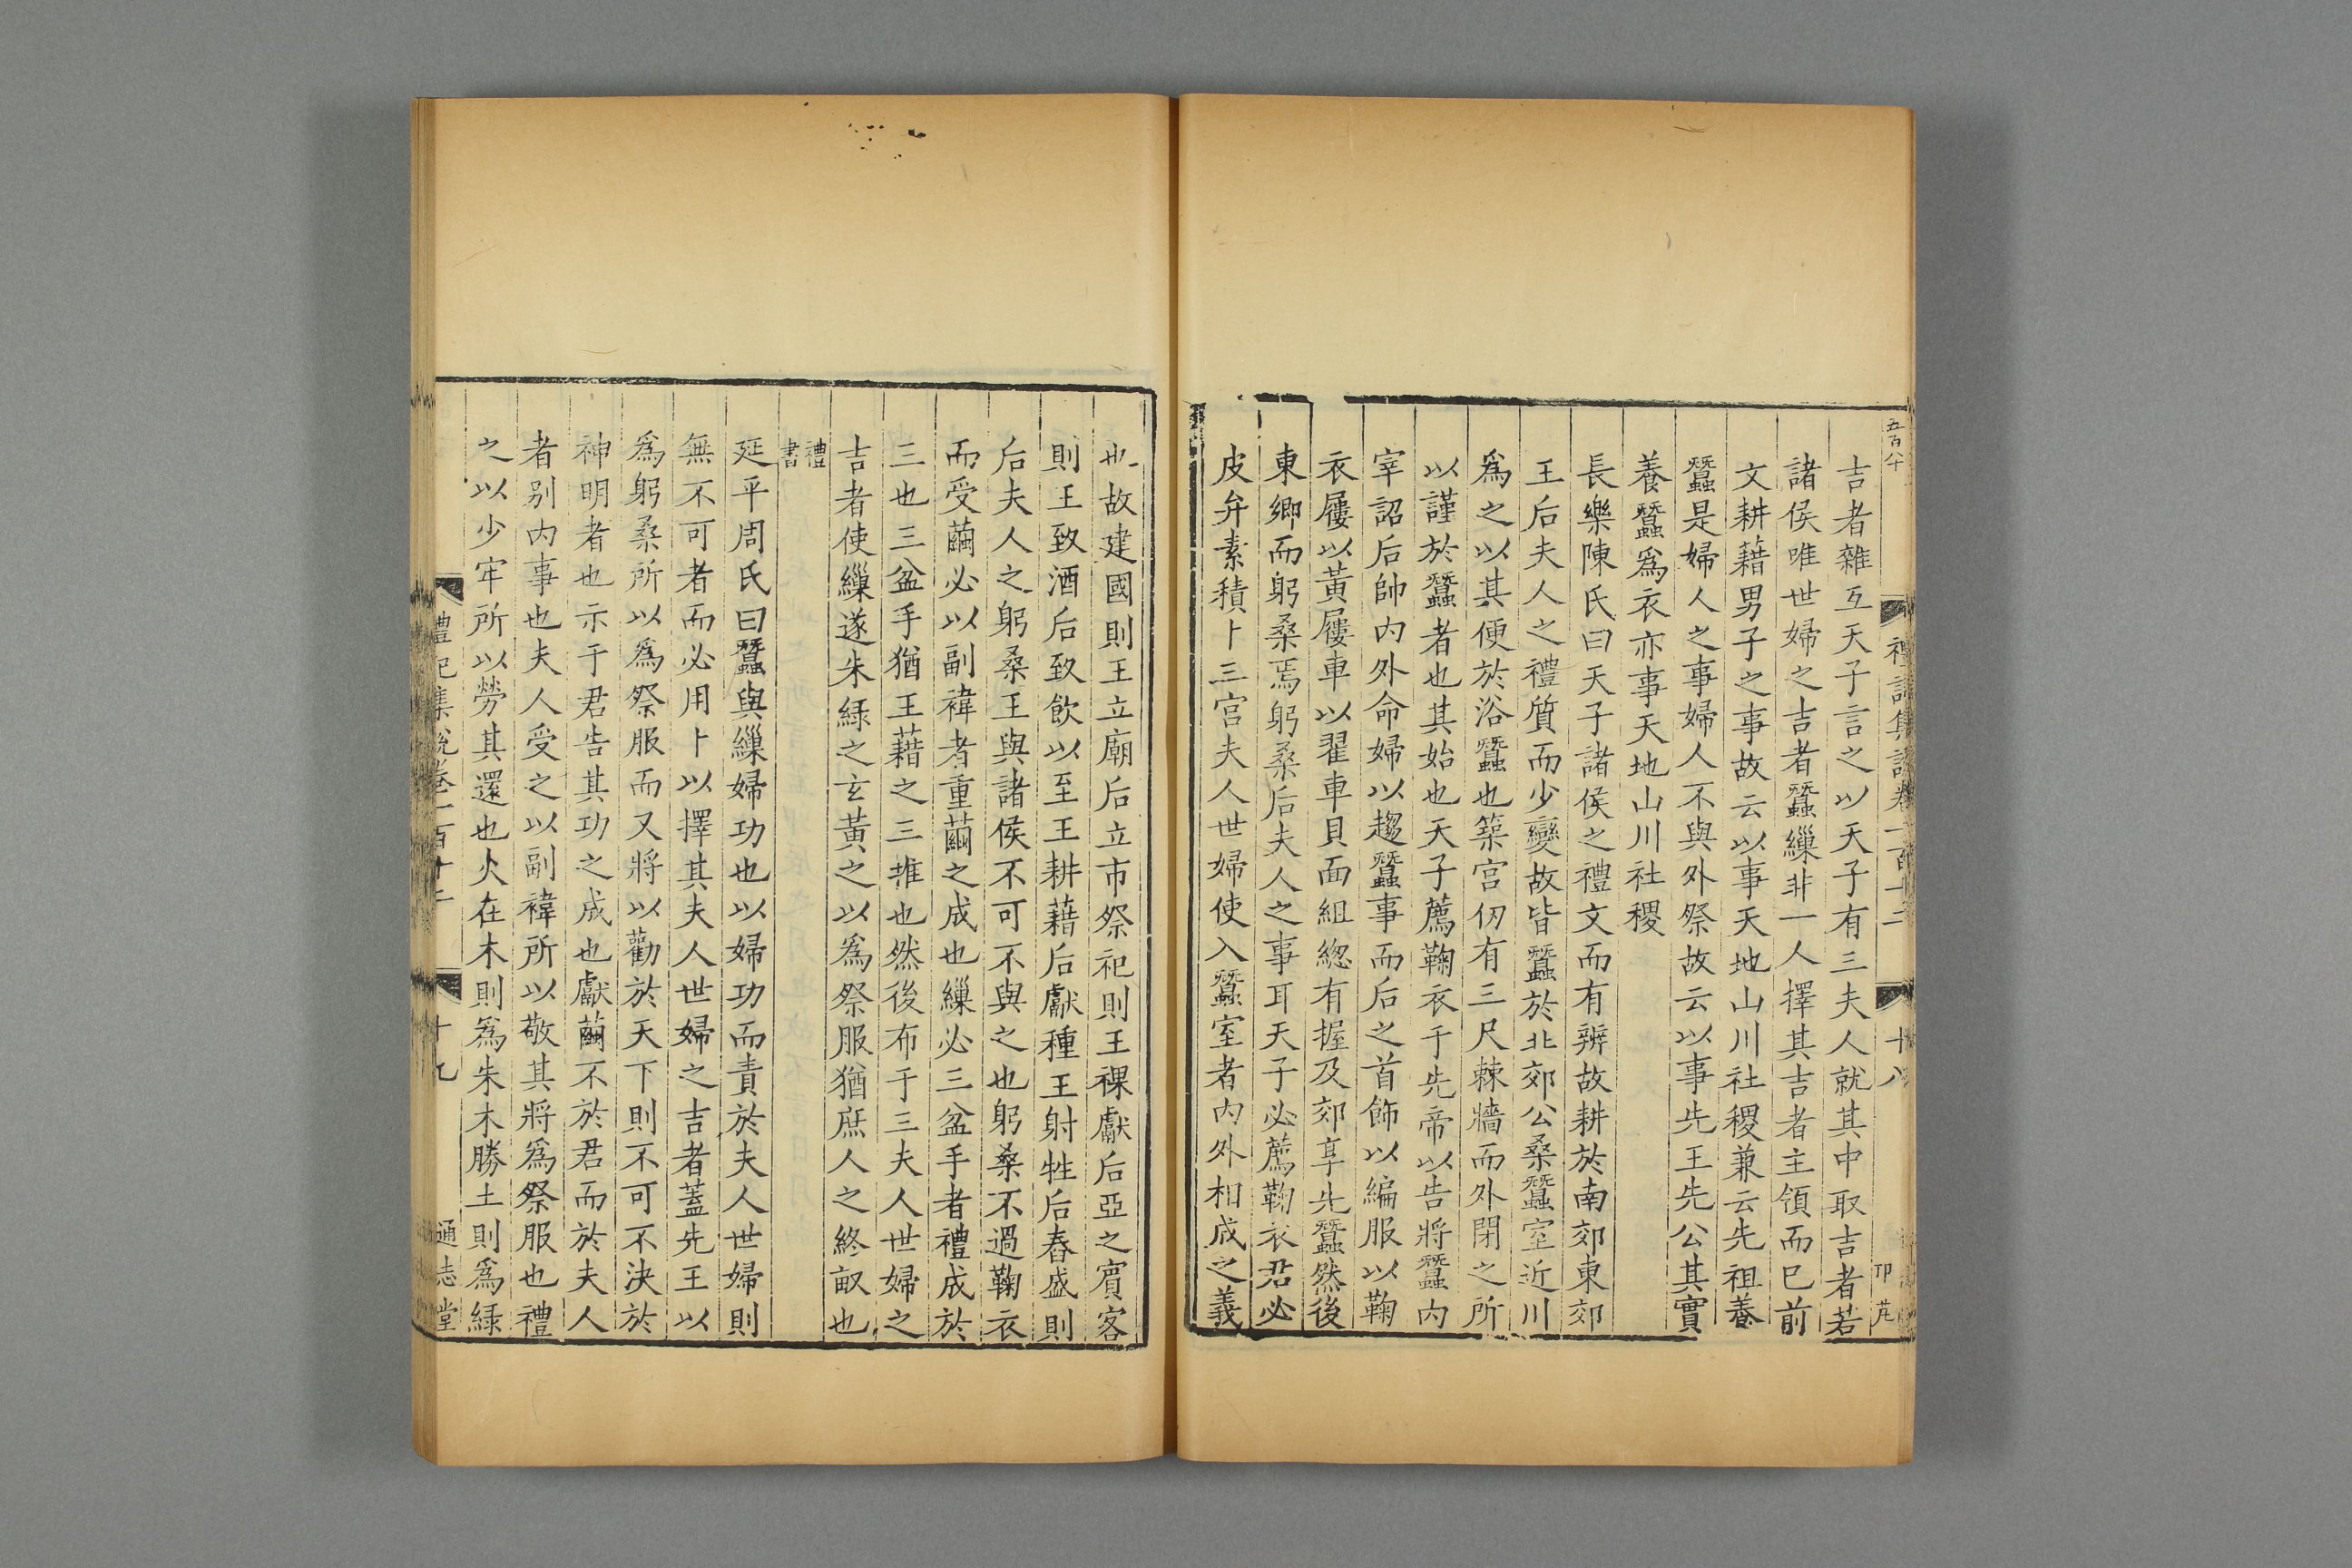 五百八十
禮記集說卷一百十二
十八
吉者雜互天子言之以天子有三夫人就其中取吉者若
諸侯唯世婦之吉者蠶繅非一人擇其吉者主領而已前
文耕藉男子之事故云以事天地山川社稷兼云先祖養
蠶是婦人之事婦人不與外祭故云以事先王先公其實
養蠶爲衣亦事天地山川社稷
長樂陳氏曰天子諸侯之禮文而有辨故耕於南郊東郊
王后夫人之禮質而少變故皆蠶於北郊公桑蠶室近川
爲之以其便於浴蠶也築宮仞有三尺棘牆而外閉之所
以謹於蠶者也其始也天子薦鞠衣于先帝以告將蠶內
宰詔后帥內外命婦以趨蠶事而后之首飾以編服以鞠
衣屨以黃屨車以翟車貝面組緫有握及郊享先蠶然後
東鄉而躬桑焉躬桑后夫人之事耳天子必薦鞠衣君必
皮弁素積卜三宮夫人世婦使入蠶室者內外相成之義
也故建國則王立廟后立市祭祀則王祼獻后亞之賓客
則王致酒后致飲以至王耕藉后獻種王射牲后舂盛則
后夫人之躬桑王與諸侯不可不與之也躬桑不過鞠衣
而受繭必以副褘者重繭之成也繅必三盆手者禮成於
三也三盆手猶王藉之三推也然後布于三夫人世婦之
吉者使繅遂朱綠之玄黃之以爲祭服猶庶人之終畝也
禮書
延平周氏曰蠶與繅婦功也以婦功而責於夫人世婦則
無不可者而必用卜以擇其夫人世婦之吉者蓋先王以
爲躬桑所以爲祭服而又將以勸於天下則不可不決於
神明者也示于君告其功之成也獻繭不於君而於夫人
者别內事也夫人受之以副褘所以敬其將爲祭服也禮
之以少牢所以勞其還也火在木則爲朱木勝土則爲綠
禮記集說卷一百十二
十九
通志堂